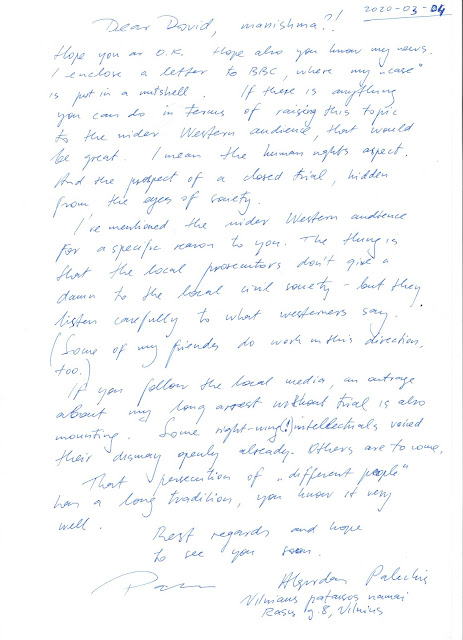 2020-03-04
Dear David, manishma?!
Hope you ar O.K. Hope also you know my news.
I enclose a letter to BBC, where my „case"
is put in a nutshell. If there is anything
you can do in terms of raising this topic
to the wider Western audience, that would
be great. I mean the human rights aspect.
And the prospect of a closed trial, hidden
from the eyes of society.
I've mentioned the wider Western audience
for a specific reason to you. The thing is
that the local prosecutors don't give a
damn to the local civil society – but they
listen carefully to what westerners say.
(Some of my friends do work in this direction,
too.)
If you follow the local media, an outrage
about my long arrest without trial is also
mounting. Some right-wing(!) intellectuals voiced
their dismay openly already. Others are to come.
That persecution of „different people"
has a long tradition, you know it very
well.
Best regards and hope
to see you soon.
Algirdas Paleckis
Vilniaus pataisos namai
Rasų g. 8, Vilnius